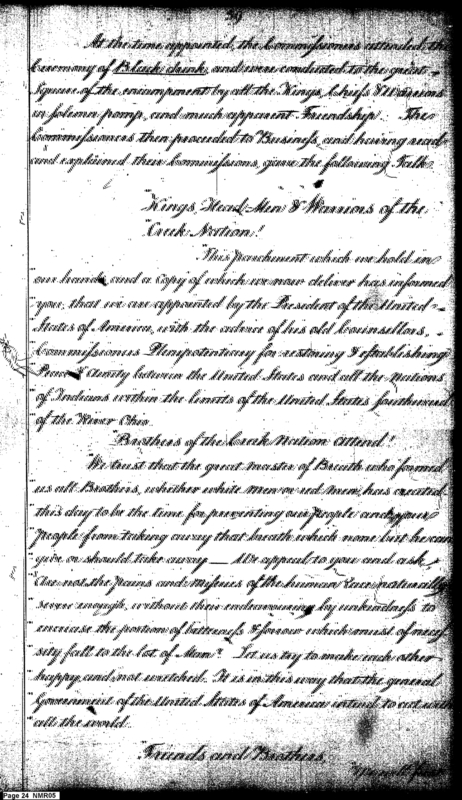 29
At the time appointed, the Commissioners attended the
Ceremony of Black drink, and were conducted to the great
Square of the encampment by all the Kings, Chiefs & Warriors
in solemn pomp, and much apparent Friendship. The
Commissioners then proceeded to Business, and having read
and explained their Commissions, gave the following Talk.
"Kings, Head Men & Warriors of the
"Creek Nation!
"This parchment which we hold in
"our hands and a Copy of which we now deliver has informed
"you, that we are appointed by the President of the United
"States of America, with the advice of his old Councellors,
"Commissioners Plenipotentiary for restoring & establishing
"Peace & Amity between the United States and all the Nations
"of Indians within the limits of the United States southward
"of the River Ohio.
"Brothers of the Creek Nation attend!
"We trust that the great master of Breath who formed
"us all Brothers, whether white men or red men, has created
"this day to be the time for preventing our people and your
"people from taking away that breath which none but he can
"give or should take away — We appeal to you and ask,
"Are not the pains and miseries of the human Race naturally
"severe enough, without their endeavouring by unkindness to
"increase the portion of bitterness & sorrow which must of neces-
"sity fall to the lot of Man? Let us try to make each other
"happy and not wretched. It is in this way that the general
"Government of the United States of America intend to act with
"all the world.
"Friends and Brothers,
Page 24 NMR05